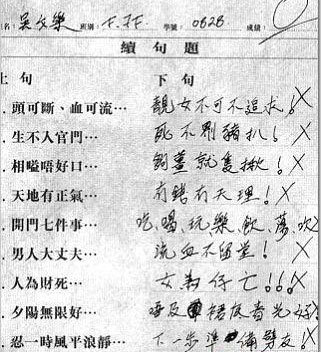 名：吳文樂 班別：F.3F. 學號：0828 成績：0
續句題
上句 下句
．頭可斷、血可流… 靚女不可不追求！X
．生不入官門… 死不劏豬扒！X
．相嗌唔好口… 就隻揪！X
．天地有正氣… 冇錢冇天理！X
．開門七件事… 吃、喝、玩、樂、飲、蕩、吹
．男人大丈夫… 流血不留堂！X
．人為財死… 女為仔亡！！！X
．夕陽無限好… 唔及
．忍一時風平浪靜… 下一步準備劈友！X